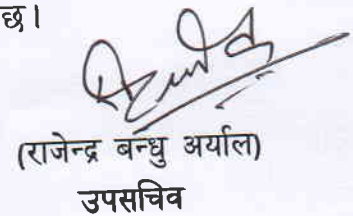 छ।
(राजेन्द्र बन्धु अर्याल)
उपसचिव